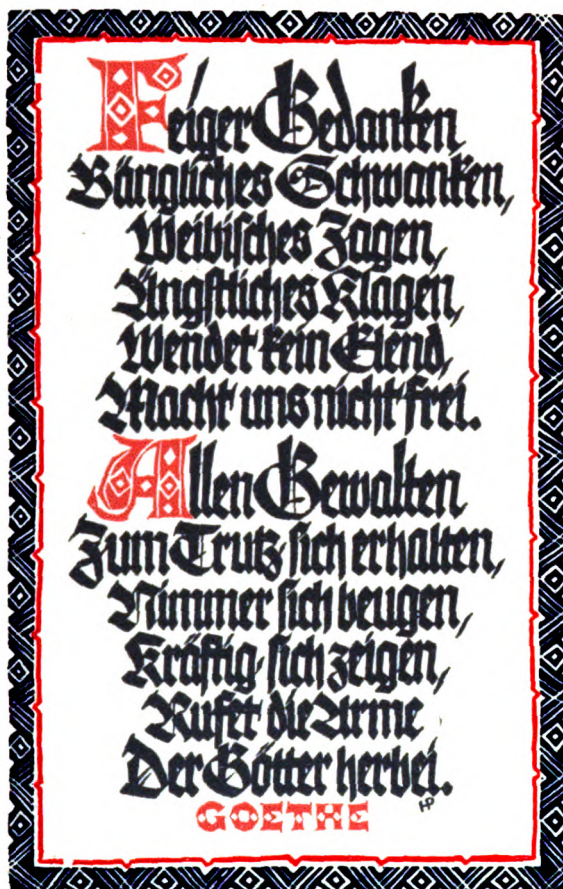 Feiger Gedanken
Bängliches Schwanken,
Weibisches Zagen,
Ängstliches Klagen,
Wendet kein Elend,
Macht uns nicht frei.
Allen Gewalten
Zum Trutz sich erhalten,
Nimmer sich beugen,
Kräftig sich zeigen,
Rufet die Arme
Der Götter herbei.
HP
GOETHE